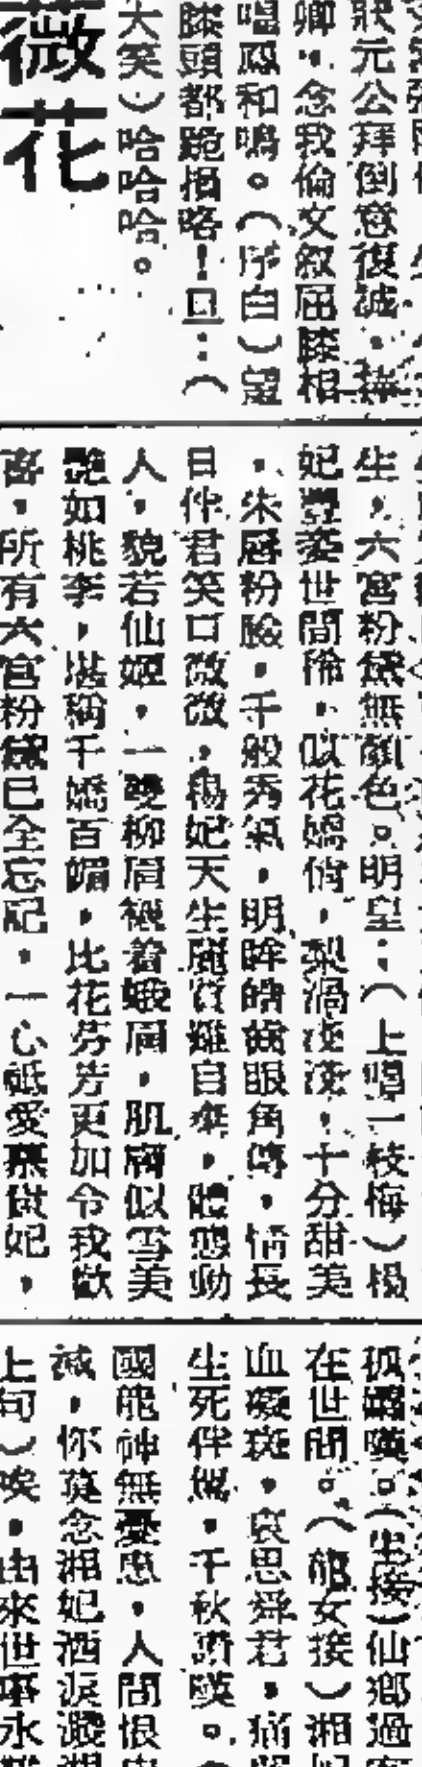 狀元公拜倒意復誠。
卿。念我倫文敘屈膝相
唱鳳和鳴。（序白）
膝頭都跪損咯！旦：（
大笑）哈哈哈。
薇花
生，六宮粉黛無顏色。明皇：（上唱一枝梅）楊
妃豐姿世間稀，似花嬌俏，梨渦淺淺，十分甜美
，朱唇粉臉，千般秀氣，明眸皓齒眼角傳，情長
日伴君笑口微微，楊妃天生麗質難自棄，體態動
人，貌若仙姬，一雙柳眉襯着娥眉，肌膚似雪美
艷如桃李，堪稱千嬌百媚，比花芬芳更加令我歡
喜，所有六宮粉黛已全忘記，一心祇愛慕貴妃，
孤孀嘆。（生接）仙鄉過
在世間。（龍女接）湘妃
血凝斑，哀思舜君，痛
生死伴侶，千秋讚嘆。
國龍神無憂患，人間恨
滅，你莫念湘妃洒淚濺湘
上句）唉，由來世事永